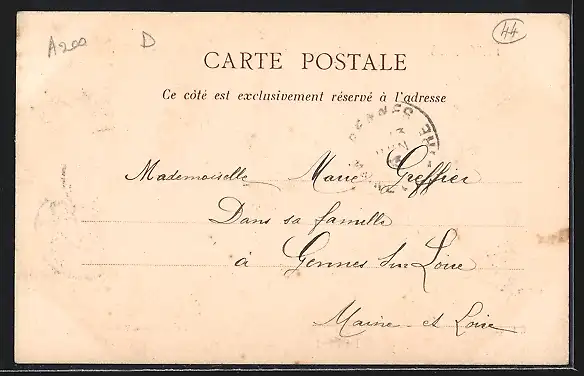 A200 D 44
CARTE POSTALE
Ce côté est exclusivement réservé à l'adresse
Mademoiselle Marie Greffier
Dans sa famille
à Gennes Sur Loire
Maine et Loire